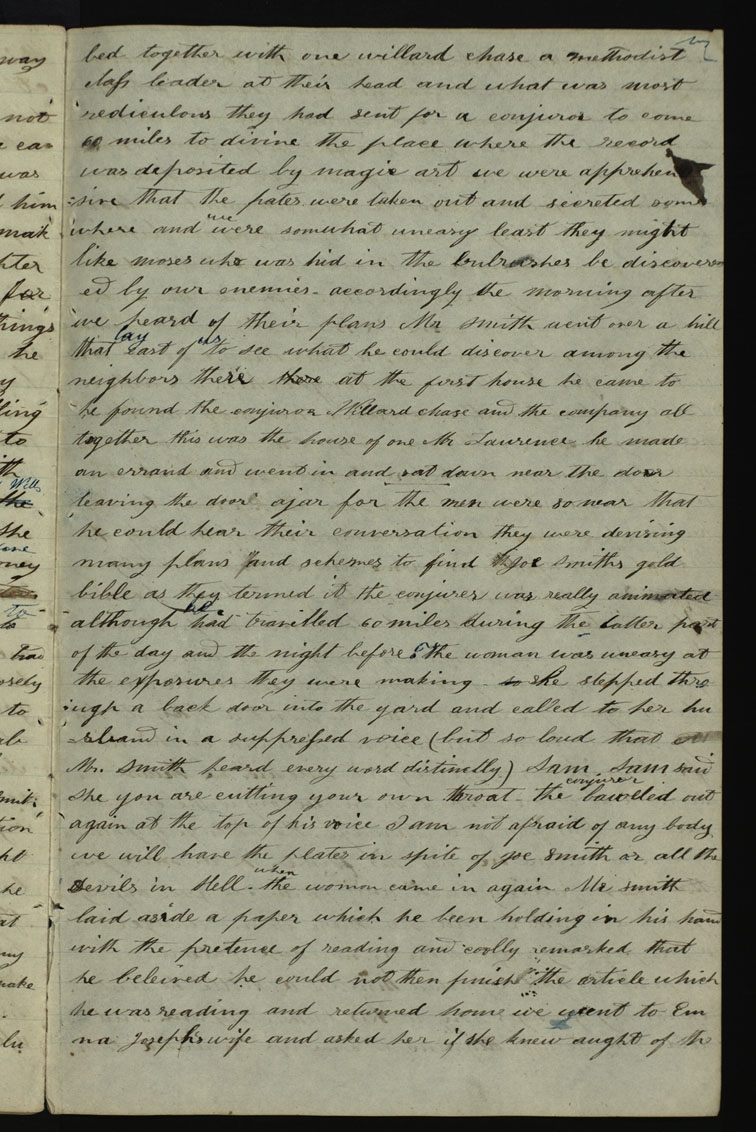 way
not
e ca
was
him
mak
ter
for
things
he
y
ling
to
th
Wells
the
she
ney
to
had
osely
to
ab
mit
tion
ht
he
at
my
make
lu
bed together with one willard chase a methodist
class leader at their head and what was most
rediculous they had sent for a conjuror to come
60 miles to divine the place where the record
was deposited by magic art we were apprehen
-sive that the pates were taken out and secreted some
where and we were somwhat uneasy least they might
like moses who was hid in the bulrushes be discover
ed by our enemies. accordingly the morning after
we heard of their plans Mr smith went over a hill
that lay east of us to see what he could discover among the
neighbors there there at the first house he came to
he found the conjuror Willard chase and the company all
together this was the house of one Mr Laurence he made
an errand and went in and sat down near the door
leaving the door ajar for the men were so near that
he could hear their conversation they were devising
many plans and schemes to find Joe Smiths gold
bible as they termed it the conjurer was really animated
although he had travelled 60 miles during the latter part
of the day and the night before the woman was uneasy at
the exposures they were making so she stepped thro
ugh a back door into the yard and called to her hu
-sband in a suppressed voice (but so loud that
Mr. Smith heard every word distinctly) Sam Sam said
she you are cutting your own throat. the conjurer bawlled out
again at the top of his voice I am not afraid of any body
we will have the plates in spite of Joe Smith or all the
Devils in Hell. when the woman came in again Mr smith
laid aside a paper which he been holding in his hand
with the pretence of reading and coolly remarked that
he beleived he could not then finish the article which
he was reading and returned home we went to Em
na Josephs wife and asked her if she knew aught of th